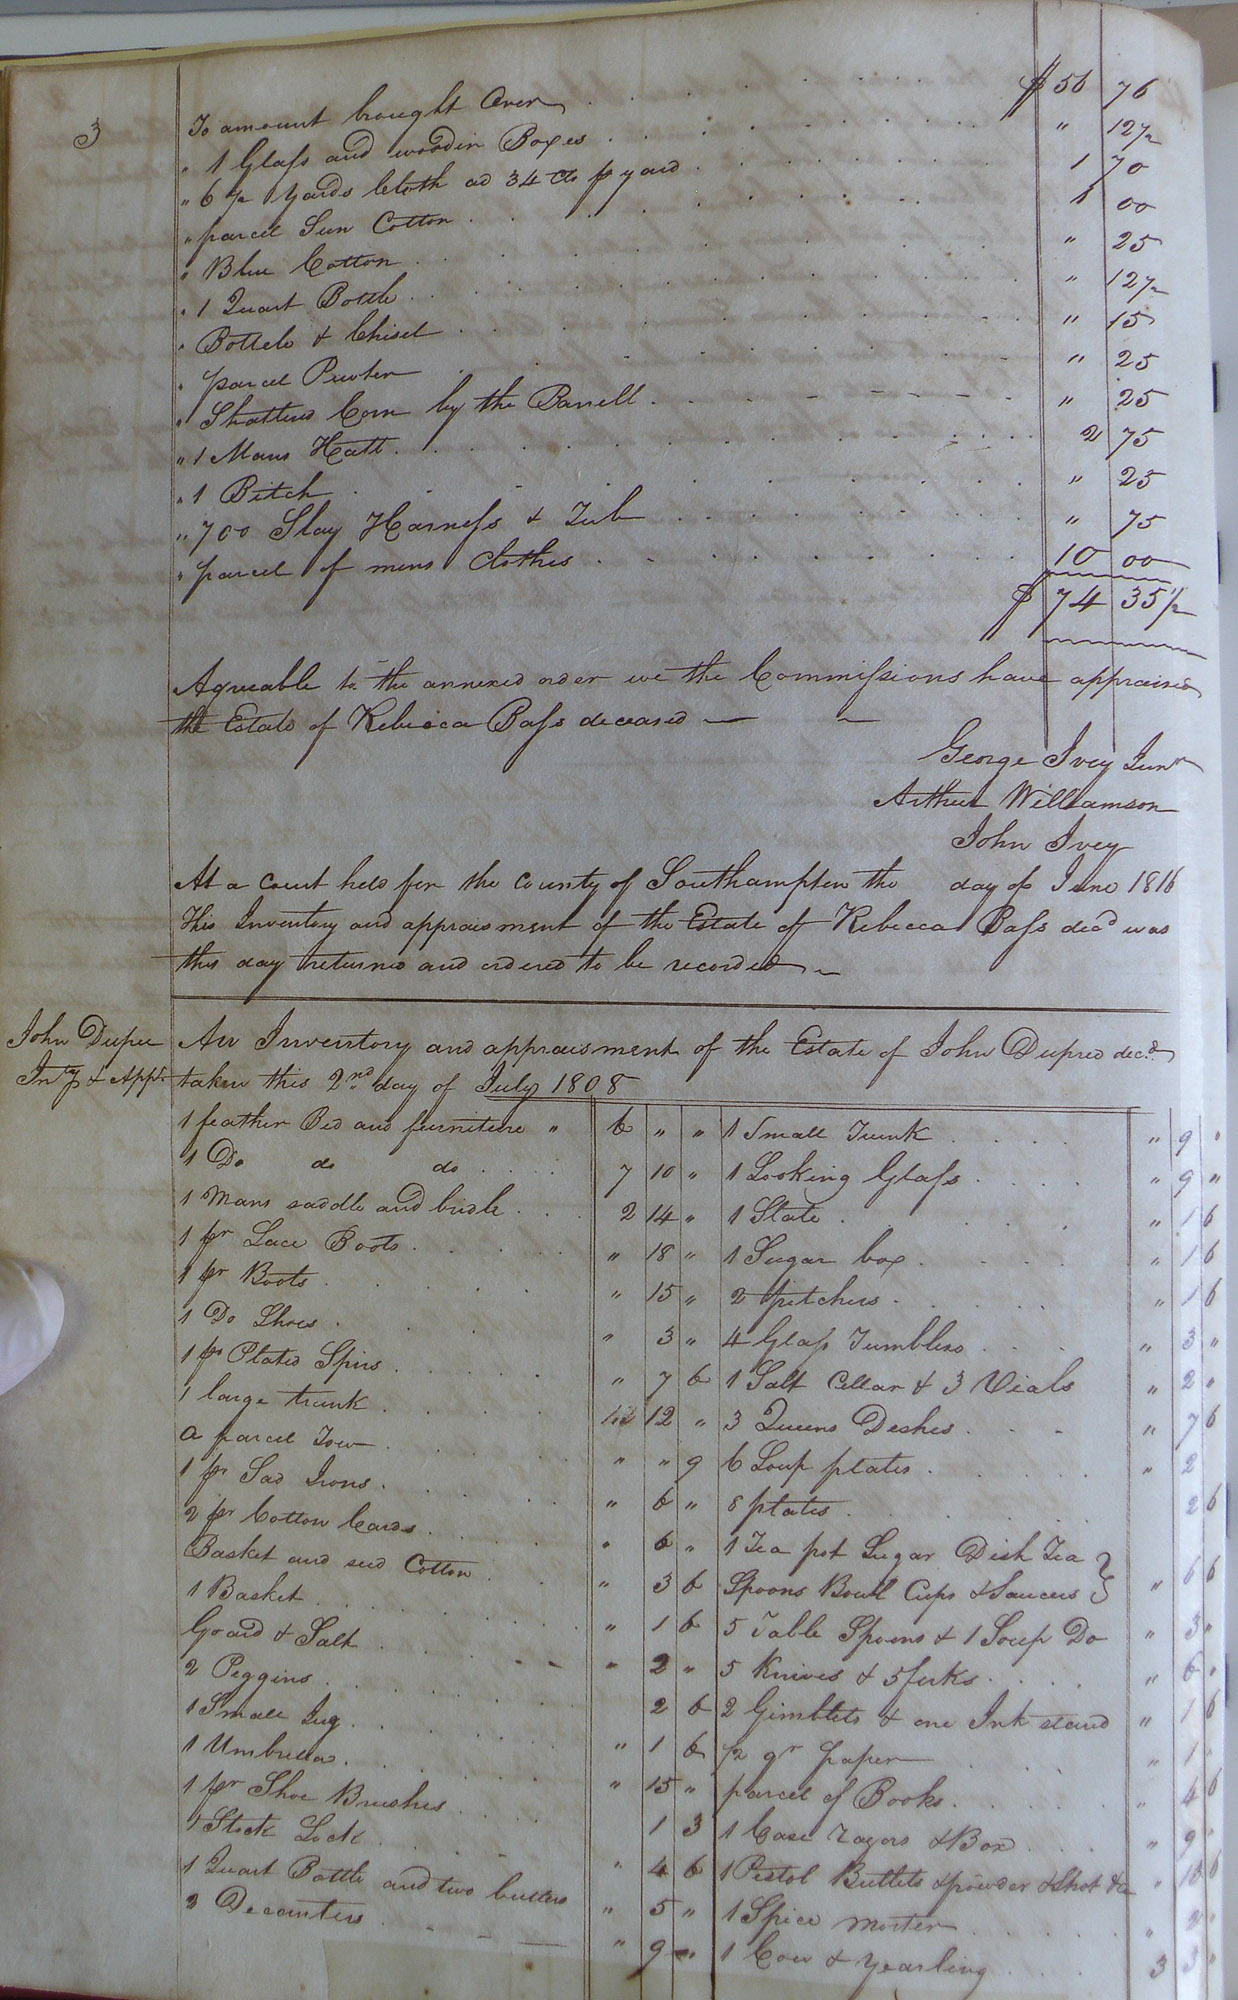 3
To amount brought Over . . . $ 56 76
" 1 Glass and wooden Boxes . . . " 12 1/2
" 6 1/2 Yards Cloth ad 34 cts pr yard . . . 1 70
" parcel Sun Cotton . . . 1 00
" Blue Cotton . . . " 25
" 1 Quart Bottle . . . " 12 1/2
" Bottele & Chisel . . . " 15
" parcel Pewter . . . " 25
" Shatterd Corn by the Barrell . . . " 25
" 1 Mans Hatt . . . 2 75
" 1 Bitch . . . " 25
" 700 Slay Harness & Tub . . . " 75
" parcel of mens Clothes . . . 10 00
$ 74 35 1/2
Agreeable to the annexed order we the Commissions have appraised
the Estate of Rebecca Bass deceased
George Ivey Junr
Arthur Williamson
John Ivey
At a Court held for the County of Southampton the day of June 1816
This Inventory and appraisment of the Estate of Rebecca Bass decd was
this day returned and ordered to be recorded
John Dupree
Inty & Appt
An Inventory and appraisment of the Estate of John Dupree decd
taken this 2nd day of July 1808
1 feather Bed and furniture " 6 " " 1 Small Trunk . . . " 9 "
1 Do do do . . . 7 10 " 1 Looking Glass . . . " 9 "
1 Mans saddle and bridle . . . 2 14 " 1 Slate . . . " 1 6
1 pr Lace Boots . . . " 18 " 1 Sugar box . . . " 1 6
1 pr Boots . . . " 15 " 2 pitchers . . . " 1 6
1 Do Shoes . . . " 3 " 4 Glass Tumblers . . . " 3 "
1 pr Plated Spirs . . . " 7 6 1 Salt Cellar & 3 Vials " 2 "
1 large trunk . . . 12 " 3 Queens Deshes . . . " 7 6
a parcel Tow . . . " " 9 6 Soup plates . . . " 2
1 pr Sad Irons . . . " 6 " 8 plates . . . 2 6
2 pr Cotton Cards . . . " 6 " 1 Tea pot Sugar Dish Tea }
Basket and seed Cotton . . . " 3 6 Spoons Bowl Cups & Saucers } " 6 6
1 Basket . . . " 1 6 5 Table Spoons & 1 Soup Do " 3 "
Goard & Salt . . . " 2 " 5 Knives & 5 forks . . . " 6 "
2 Peggins . . . 2 6 2 Gimblets & one Ink stand " 1 6
1 Small Jug . . . " 1 6 1/2 qr paper . . . " 1 "
1 Umbrella . . . " 15 " parcel of Books . . . " 4 6
1 pr Shoe Brushes . . . 1 3 1 Case razors & Box . . . " 9 "
1 Stock Lock . . . " 4 6 1 Pistol Bullets & powder & Shot &c " 18 6
1 Quart Bottle and two busters " 5 " 1 Spice morter . . . " 2 "
2 Decanters . . . " 9 " 1 Cow & yearling . . . 3 3 "